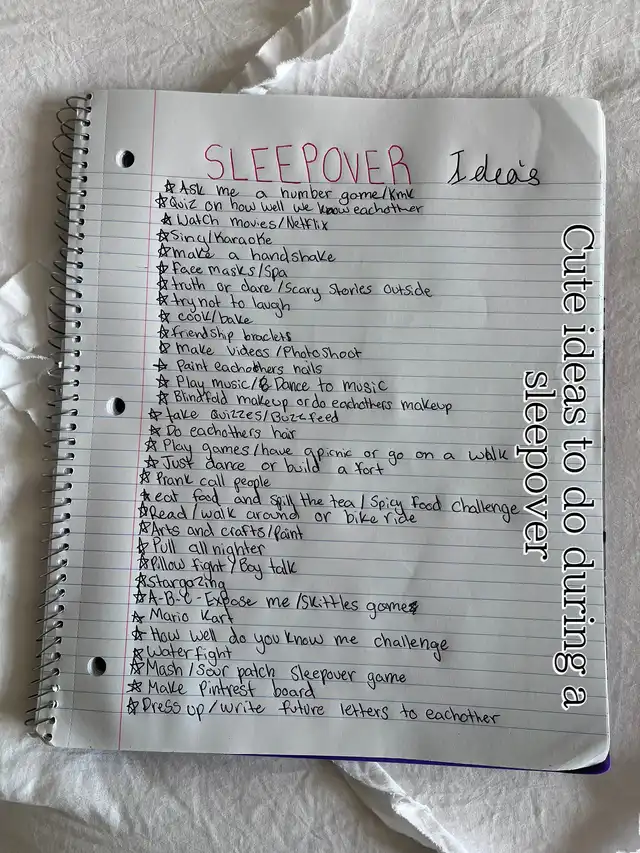 SLEEPOVER Idea's
☆ Ask me a number game/kmk
☆ Quiz on how well we know eachother
☆ Watch movies/Netflix
☆ Sing/Karaoke
☆ make a handshake
☆ Face masks/spa
☆ truth or dare/Scary Stories outside
☆ try not to laugh
☆ cook/bake
☆ friendship braclets
☆ make videos/Photoshoot
☆ Paint eachothers nails
☆ Play music/& Dance to music
☆ Blindfold makeup or do eachothers makeup
☆ take Quizzes/Buzzfeed
☆ Do eachothers hair
☆ Play games/have a picnic or go on a walk
☆ Just dance or build a fort
☆ Prank call people
☆ eat food and spill the tea/Spicy food challenge
☆ Read/walk around or bike ride
☆ Arts and crafts/Paint
☆ Pull all nighter
☆ Pillow fight/Boy talk
☆ Stargazing
☆ A-B-C-Expose me/Skittles game
☆ Mario Kart
☆ How well do you know me challenge
☆ Waterfight
☆ Mash/Sour patch Sleepover game
☆ Make Pintrest board
☆ Dress up/write future letters to eachother
Cute ideas to do during a
sleepover